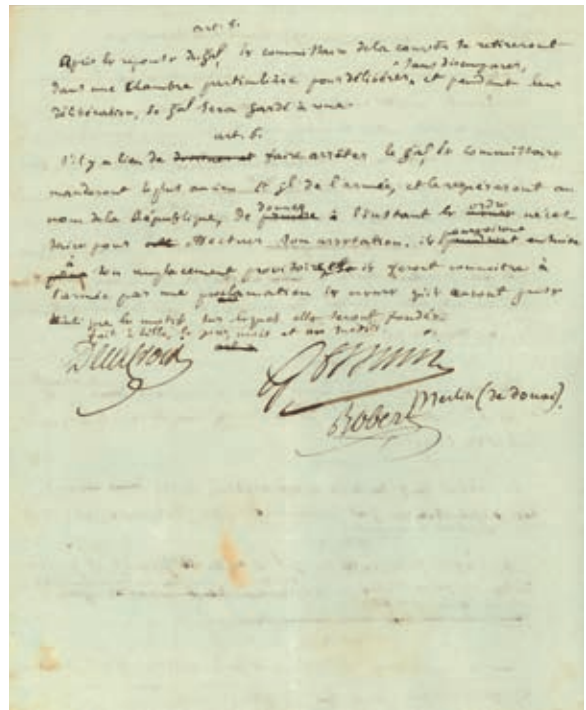 art. 5.
Après les reponses du Gal, les commissaires de la convon se retireront
sans desemparer,
dans une chambre particulière pour délibérer, et pendant leur
délibération, le Gal sera gardé à vue.
art. 6.
S'il y a lien de faire arrêter le Gal, les commissaires
manderont le plus ancien Lt gl. de l'armée, et le requereront au
nom de la République, de donner à l'instant les ordres néces-
saires pour effectuer son arrestation. ils pourvoiront ensuite
à son remplacement provisoire, et ils feront connoitre à
l'armée par une proclamation les mesures qu'ils auront prises
que les motifs sur lesquels elles seront fondées.
fait à Lille, les jour, mois et an
Delacroix
Gossuin
Merlin (de douai).
Robert